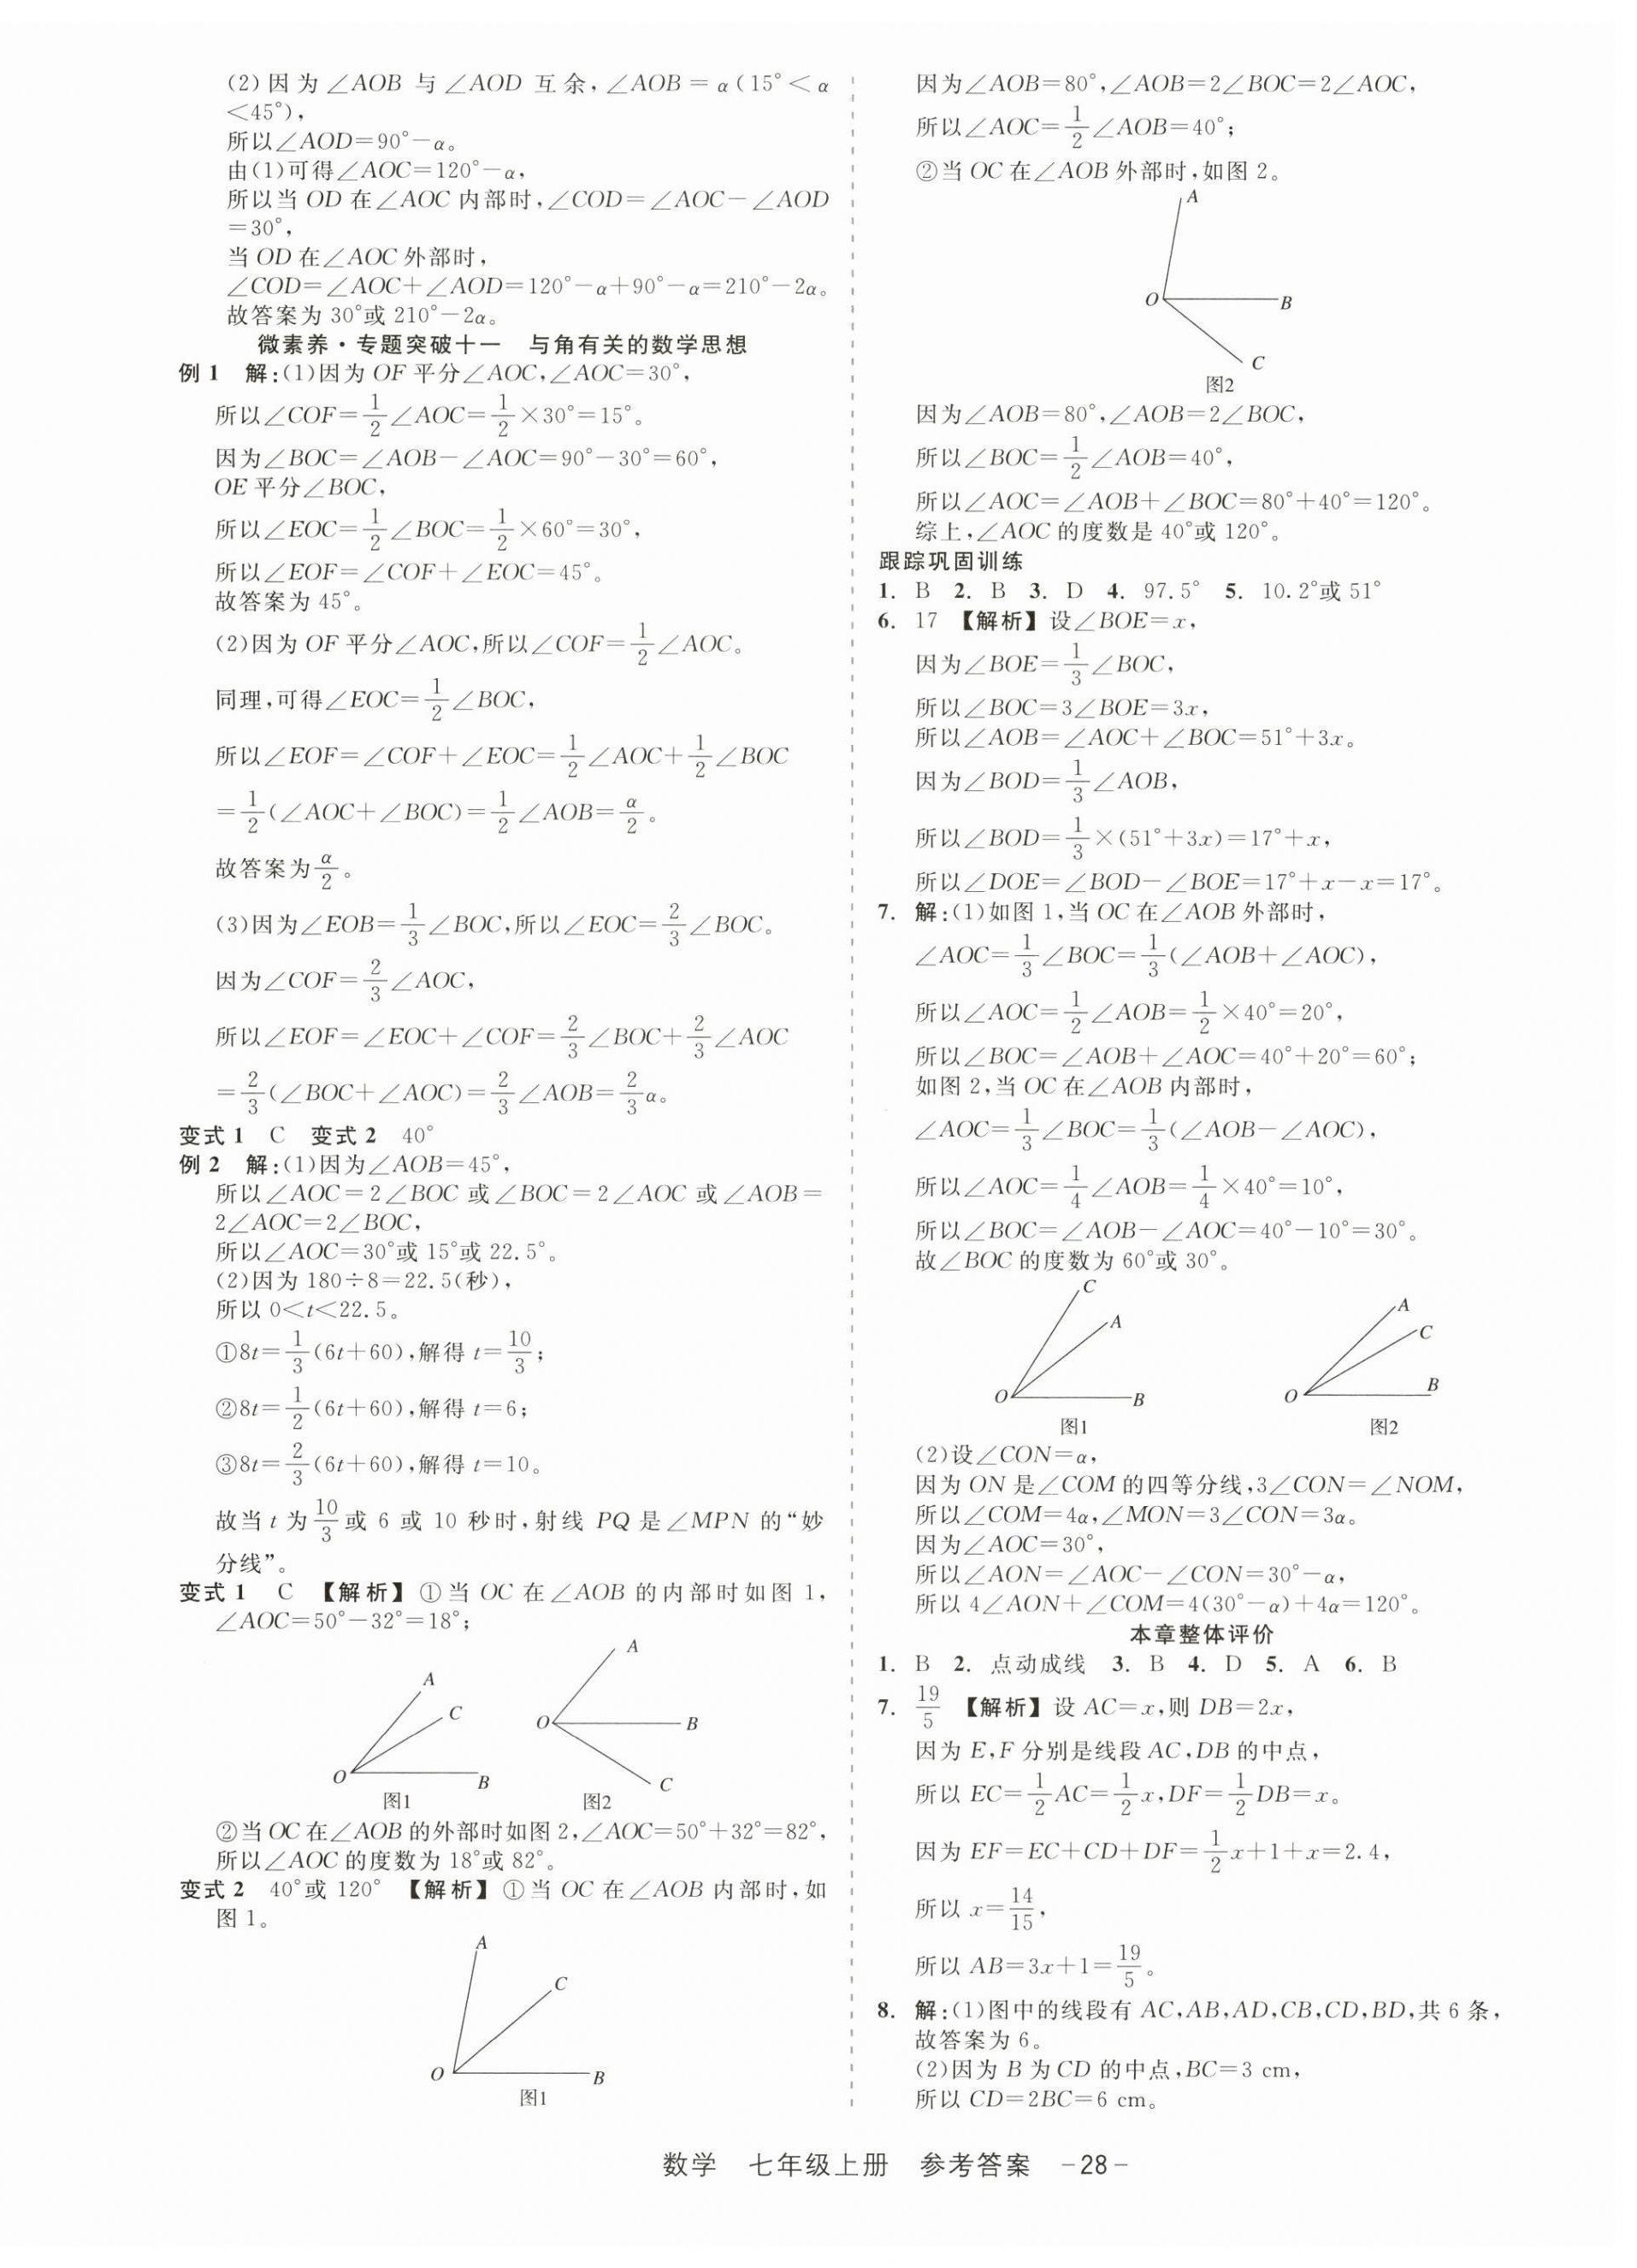 (2)因为∠AOB 与∠AOD 互余,∠AOB=α(15°<α
<45°),
所以∠AOD=90°-α。
由(1)可得∠AOC=120°-α,
所以当 OD 在∠AOC 内部时,∠COD=∠AOC-∠AOD
=30°,
当 OD 在∠AOC 外部时,
∠COD=∠AOC+∠AOD=120°-α+90°-α=210°-2α。
故答案为 30°或 210°-2α。
微素养·专题突破十一 与角有关的数学思想
例 1 解:(1)因为 OF 平分∠AOC,∠AOC=30°,
所以∠COF=1/2∠AOC=1/2×30°=15°。
因为∠BOC=∠AOB-∠AOC=90°-30°=60°,
OE 平分∠BOC,
所以∠EOC=1/2∠BOC=1/2×60°=30°,
所以∠EOF=∠COF+∠EOC=45°。
故答案为 45°。
(2)因为 OF 平分∠AOC,所以∠COF=1/2∠AOC。
同理,可得∠EOC=1/2∠BOC,
所以∠EOF=∠COF+∠EOC=1/2∠AOC+1/2∠BOC
=1/2(∠AOC+∠BOC)=1/2∠AOB=α/2。
故答案为α/2。
(3)因为∠EOB=1/3∠BOC,所以∠EOC=2/3∠BOC。
因为∠COF=2/3∠AOC,
所以∠EOF=∠EOC+∠COF=2/3∠BOC+2/3∠AOC
=2/3(∠BOC+∠AOC)=2/3∠AOB=2/3α。
变式 1 C 变式 2 40°
例 2 解:(1)因为∠AOB=45°,
所以∠AOC=2∠BOC 或∠BOC=2∠AOC 或∠AOB=
2∠AOC=2∠BOC,
所以∠AOC=30°或 15°或 22.5°。
(2)因为 180÷8=22.5(秒),
所以 0<t<22.5。
①8t=1/3(6t+60),解得 t=10/3;
②8t=1/2(6t+60),解得 t=6;
③8t=2/3(6t+60),解得 t=10。
故当 t 为10/3或 6 或 10 秒时,射线 PQ 是∠MPN 的“妙
分线”。
变式 1 C 【解析】①当 OC 在∠AOB 的内部时如图 1,
∠AOC=50°-32°=18°;
A
C
O
B
图1
A
O
B
C
图2
②当 OC 在∠AOB 的外部时如图 2,∠AOC=50°+32°=82°,
所以∠AOC 的度数为 18°或 82°。
变式 2 40°或 120° 【解析】①当 OC 在∠AOB 内部时,如
图 1。
A
C
O
B
图1
因为∠AOB=80°,∠AOB=2∠BOC=2∠AOC,
所以∠AOC=1/2∠AOB=40°;
②当 OC 在∠AOB 外部时,如图 2。
A
O
B
C
图2
因为∠AOB=80°,∠AOB=2∠BOC,
所以∠BOC=1/2∠AOB=40°,
所以∠AOC=∠AOB+∠BOC=80°+40°=120°。
综上,∠AOC 的度数是 40°或 120°。
跟踪巩固训练
1. B 2. B 3. D 4. 97.5° 5. 10.2°或 51°
6. 17 【解析】设∠BOE=x,
因为∠BOE=1/3∠BOC,
所以∠BOC=3∠BOE=3x,
所以∠AOB=∠AOC+∠BOC=51°+3x。
因为∠BOD=1/3∠AOB,
所以∠BOD=1/3×(51°+3x)=17°+x,
所以∠DOE=∠BOD-∠BOE=17°+x-x=17°。
7. 解:(1)如图 1,当 OC 在∠AOB 外部时,
∠AOC=1/3∠BOC=1/3(∠AOB+∠AOC),
所以∠AOC=1/2∠AOB=1/2×40°=20°,
所以∠BOC=∠AOB+∠AOC=40°+20°=60°;
如图 2,当 OC 在∠AOB 内部时,
∠AOC=1/3∠BOC=1/3(∠AOB-∠AOC),
所以∠AOC=1/4∠AOB=1/4×40°=10°,
所以∠BOC=∠AOB-∠AOC=40°-10°=30°。
故∠BOC 的度数为 60°或 30°。
C
A
O
B
图1
A
C
B
O
图2
(2)设∠CON=α,
因为 ON 是∠COM 的四等分线,3∠CON=∠NOM,
所以∠COM=4α,∠MON=3∠CON=3α。
因为∠AOC=30°,
所以∠AON=∠AOC-∠CON=30°-α,
所以 4∠AON+∠COM=4(30°-α)+4α=120°。
本章整体评价
1. B 2. 点动成线 3. B 4. D 5. A 6. B
7. 19/5 【解析】设 AC=x,则 DB=2x,
因为 E,F 分别是线段 AC,DB 的中点,
所以 EC=1/2AC=1/2x,DF=1/2DB=x。
因为 EF=EC+CD+DF=1/2x+1+x=2.4,
所以 x=14/15,
所以 AB=3x+1=19/5。
8. 解:(1)图中的线段有 AC,AB,AD,CB,CD,BD,共 6 条,
故答案为 6。
(2)因为 B 为 CD 的中点,BC=3 cm,
所以 CD=2BC=6 cm。
数学 七年级上册 参考答案 -28-